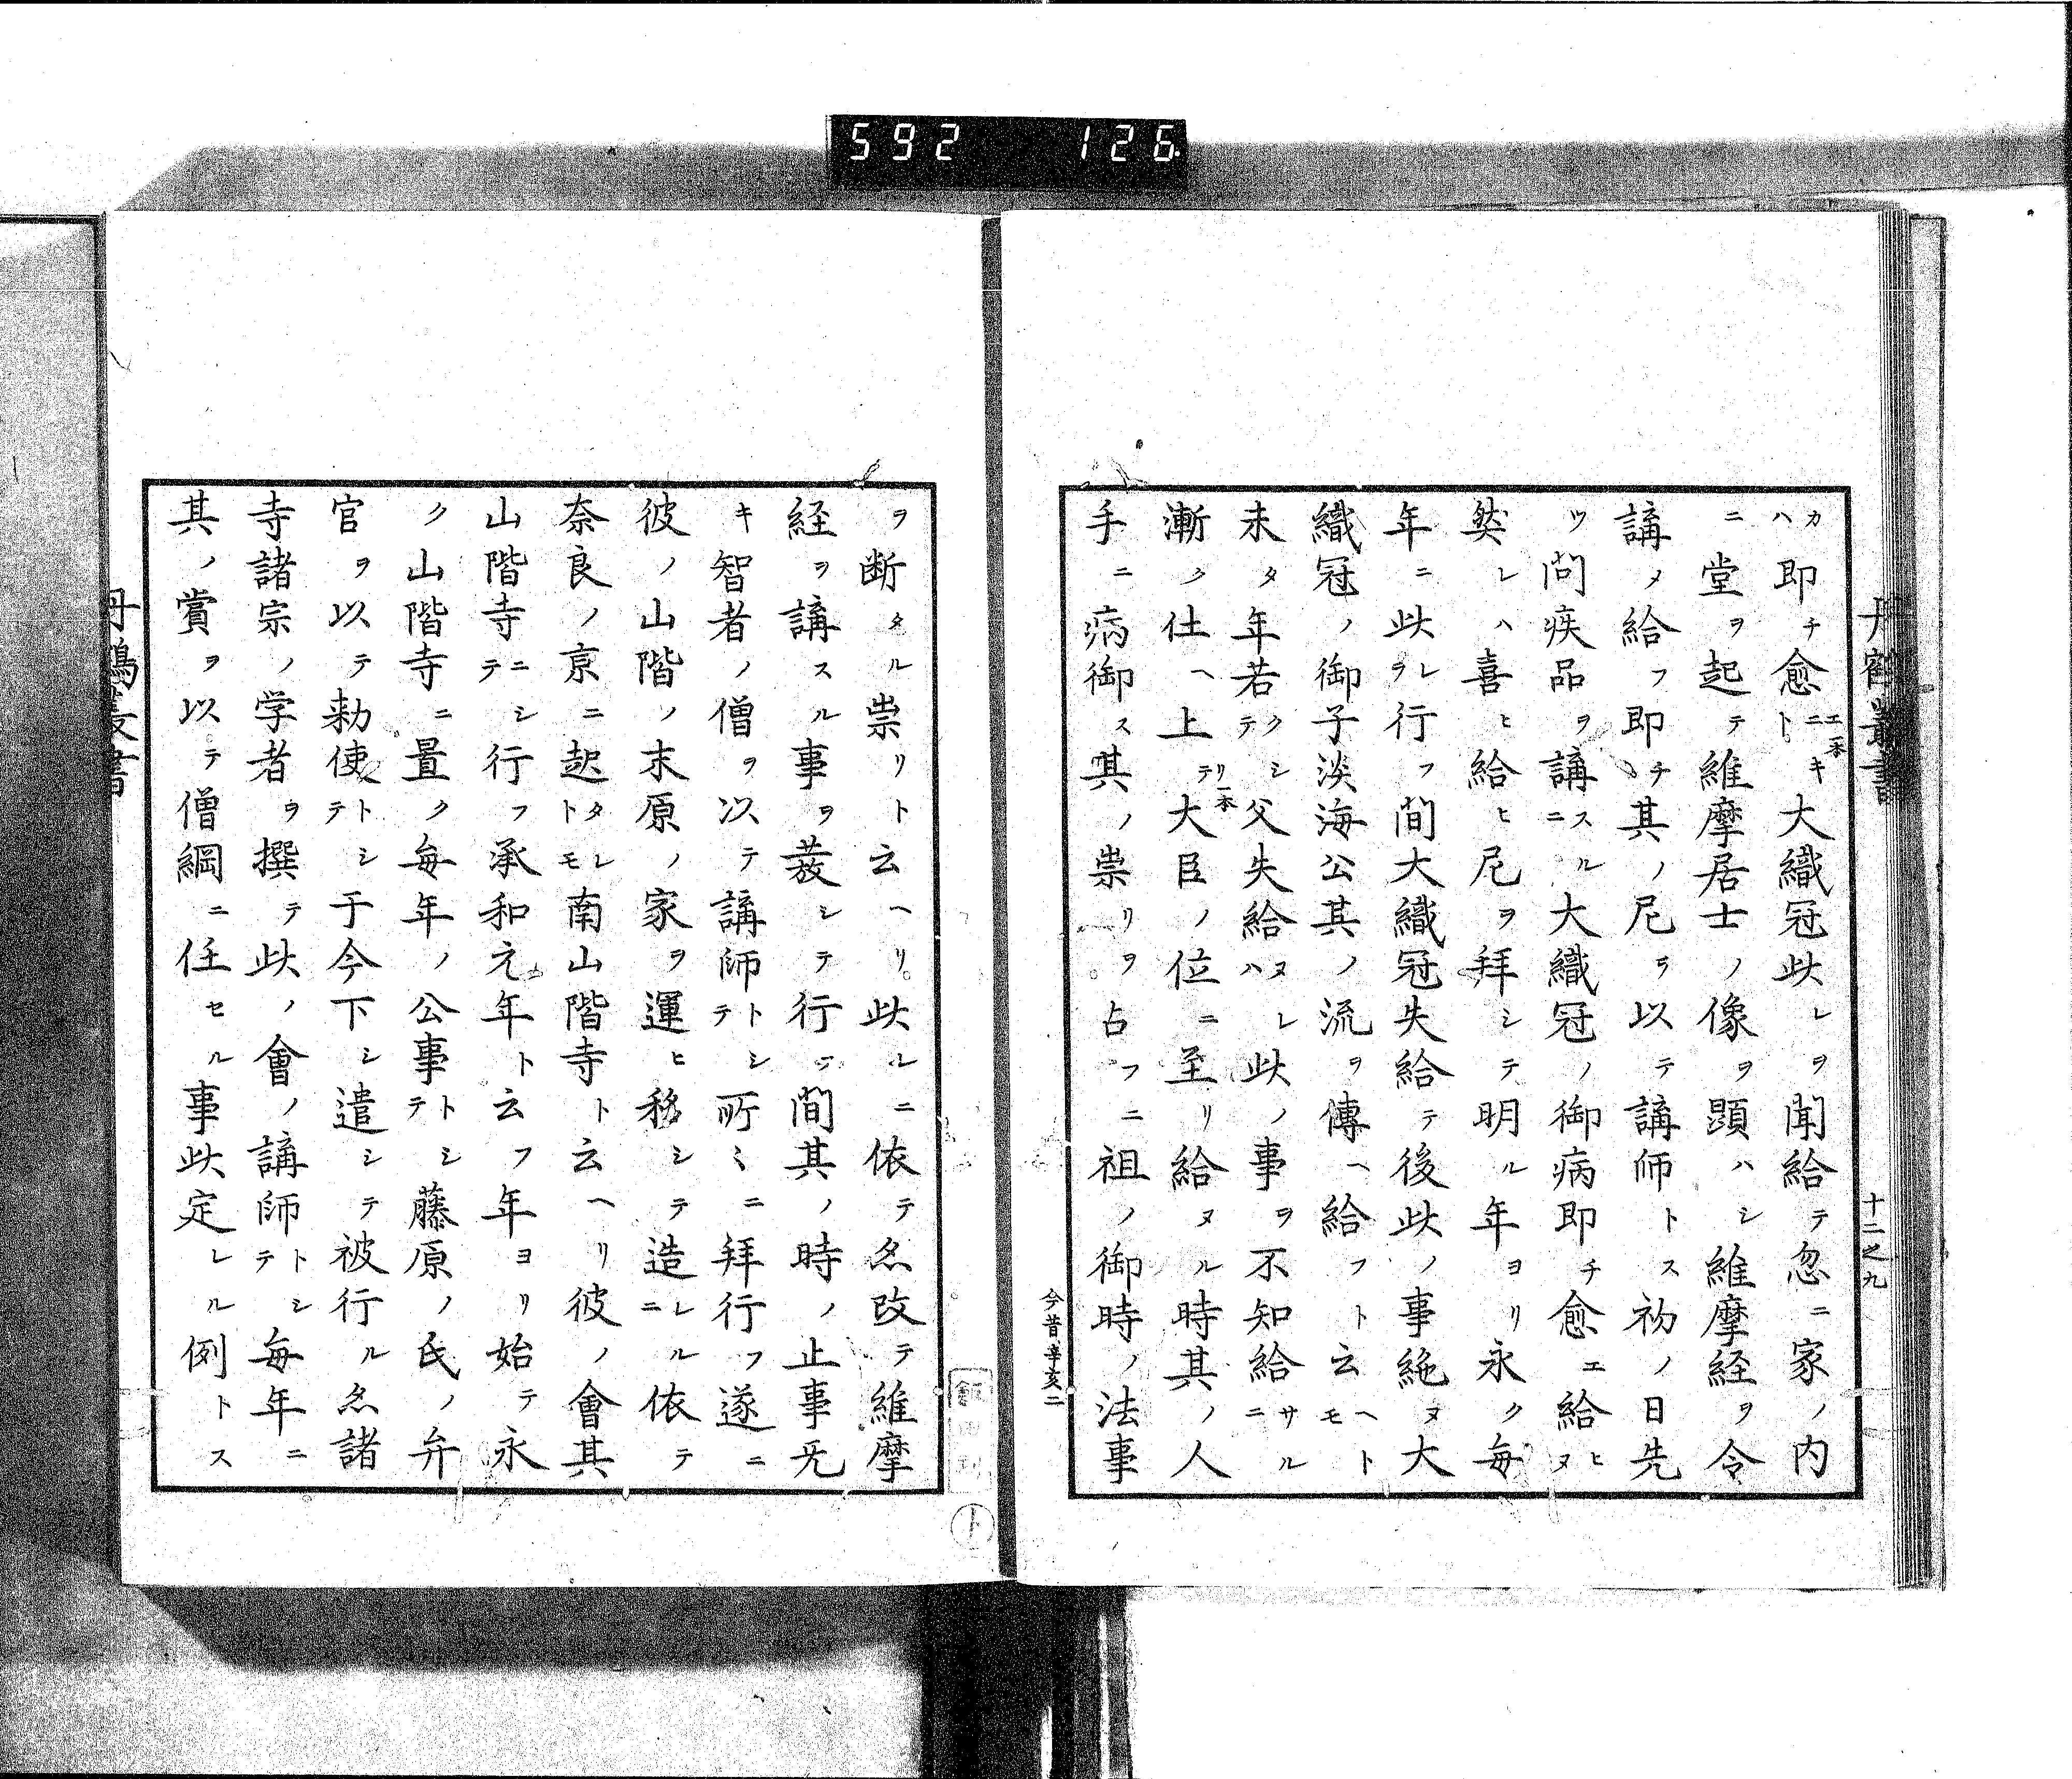 592 126
丹鶴叢書
十二之九
カハ即チ愈ニキト大織冠此レヲ聞給テ忽ニ家ノ内
エ一本
ニ堂ヲ起テ維摩居士ノ像ヲ顕ハシ維摩経ヲ令
講メ給フ即チ其ノ尼ヲ以テ講師トス初ノ日先
ツ問疾品ヲ講スルニ大織冠ノ御病即チ愈エ給ヒヌ
然レハ喜ヒ給ヒ尼ヲ拜シテ明ル年ヨリ永ク毎
年ニ此レヲ行フ間大織冠失給テ後此ノ事絶ヌ大
織冠ノ御子淡海公其ノ流ヲ傳ヘ給フト云ヘトモ
未タ年若クシテ父失給ヌレハ此ノ事ヲ不知給サルニ
漸ク仕ヘ上テ大臣ノ位ニ至リ給ヌル時其ノ人
リ一本
手ニ病御ス其ノ祟リヲ占フニ祖ノ御時ノ法事
今昔辛亥二
ヲ断タル祟リト云ヘリ此レニ依テ亦改テ維摩
経ヲ講スル事ヲ發シテ行フ間其ノ時ノ止事无
キ智者ノ僧ヲ以テ講師トシテ所ミニ拜行フ遂ニ
彼ノ山階ノ末原ノ家ヲ運ヒ移シテ造レルニ依テ
奈良ノ京ニ起タレトモ南山階寺ト云ヘリ彼ノ會其
山階寺ニシテ行フ承和元年ト云フ年ヨリ始テ永
ク山階寺ニ置ク毎年ノ公事トシテ藤原ノ氏ノ弁
官ヲ以テ勅使トシテ于今下シ遣シテ被行ル亦諸
寺諸宗ノ学者ヲ撰テ此ノ會ノ講師トシテ毎年ニ
其ノ賞ヲ以テ僧綱ニ任セル事此定レル例トス
丹鶴叢書